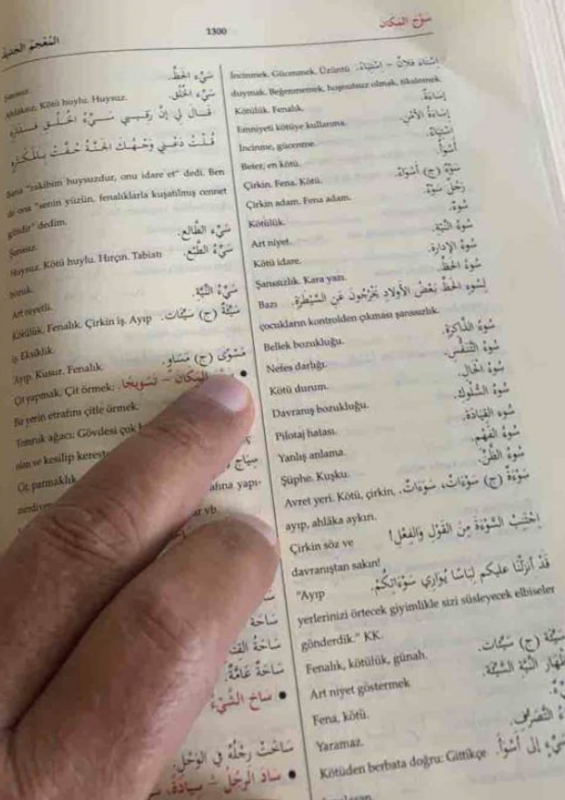 سَوَّجَ المَكَان
1300
المُعْجَم
استاءَ فلانٌ – اِسْتِيَاءً.
İncinmek. Gücenmek. Üzüntü
duymak. Beğenmemek, hoşnutsuz olmak, tiksinmek.
إِسَاءَة.
Kötülük. Fenalık.
إِسَاءَةُ الأَمْنِ.
Emniyeti kötüye kullanma.
اِسْتِيَاء.
İncinme, gücenme.
أَسْوَأُ.
Beter, en kötü.
سَوْءٌ (ج) أَسْوَاء.
Çirkin. Fena. Kötü.
رَجُلُ سَوْءٍ.
Çirkin adam. Fena adam.
سُوءٌ.
Kötülük.
سُوءُ النِّيَّة.
Art niyet.
سُوءُ الإدارة.
Kötü idare.
سُوءُ الحَظِّ.
Şanssızlık. Kara yazı.
لِسُوءِ الحَظِّ بَعْضُ الأَوْلادِ يَخْرُجُونَ عَنِ السَّيْطَرَةِ.
Bazı
çocukların kontrolden çıkması şanssızlık.
سُوءُ الذَّاكِرَة.
Bellek bozukluğu.
سُوءُ التَّنَفُّس.
Nefes darlığı.
سُوءُ الحَال.
Kötü durum.
سُوءُ السُّلُوك.
Davranış bozukluğu.
سُوء القِيَادَة.
Pilotaj hatası.
سُوءُ الفَهْم.
Yanlış anlama.
سُوءُ الظَّنّ.
Şüphe. Kuşku.
سَوْءَةٌ (ج) سَوْءَات، سَوْءَات.
Avret yeri. Kötü, çirkin,
ayıp, ahlâka aykırı.
اِجْتَنِبِ السَّوْءَةَ مِنَ القَوْلِ وَالفِعْلِ!
Çirkin söz ve
davranıştan sakın!
قَدْ أَنزَلْنَا عليكم لِبَاسًا يُوَارِي سَوْءَاتِكُمْ.
"Ayıp
yerlerinizi örtecek giyimlikle sizi süsleyecek elbiseler
gönderdik." KK.
سَيِّئَة (ج) سَيِّئَات.
Fenalık, kötülük, günah.
النِّيَّة السَّيِّئَة.
Art niyet göstermek
Fena, kötü.
التَّصَرُّف.
Yaramaz.
إلى أَسْوَأ.
Kötüden berbata doğru: Gittikçe
سَيِّءُ الحَظِّ.
Şanssız.
سَيِّءُ الخُلُق.
Ahlâksız. Kötü huylu. Huysuz.
قَالَ لي إنَّ رَقِيبِي سَيِّءُ الخُلُقِ فَدَارِهِ
قُلْتُ دَعْنِي وَجْهُكَ الجَنَّةُ حُفَّتْ بِالمَكَارِهِ
Bana "rakibim huysuzdur, onu idare et" dedi. Ben
de ona "senin yüzün, fenalıklarla kuşatılmış cennet
gibidir" dedim.
سَيِّءُ الطَّالِع.
Şanssız.
سَيِّءُ الطَّبْع.
Huysuz. Kötü huylu. Hırçın. Tabiatı
bozuk.
سَيِّءُ النِّيَّة.
Art niyetli.
سَيِّئَة (ج) سَيِّئَات.
Kötülük. Fenalık. Çirkin iş. Ayıp
iş. Eksiklik.
مَسْوَى (ج) مَسَاوٍ.
Ayıp. Kusur. Fenalık.
• المَكَان – تَسْوِيجًا.
Çit yapmak. Çit örmek;
Bir yerin etrafını çitle örmek.
Tomruk ağacı: Gövdesi çok
olan ve kesilip kereste
سِيَاج
Çit, parmaklık
afına yapı-
ar vb.
سَاحَة
سَاحَةُ
سَاحَةٌ عَامَّة.
• سَاخَ الشَّيْءُ
سَاخَتْ رِجْلُهُ في الوَحْلِ.
• سَادَ الرَّجُلُ – سِيَادَةً،